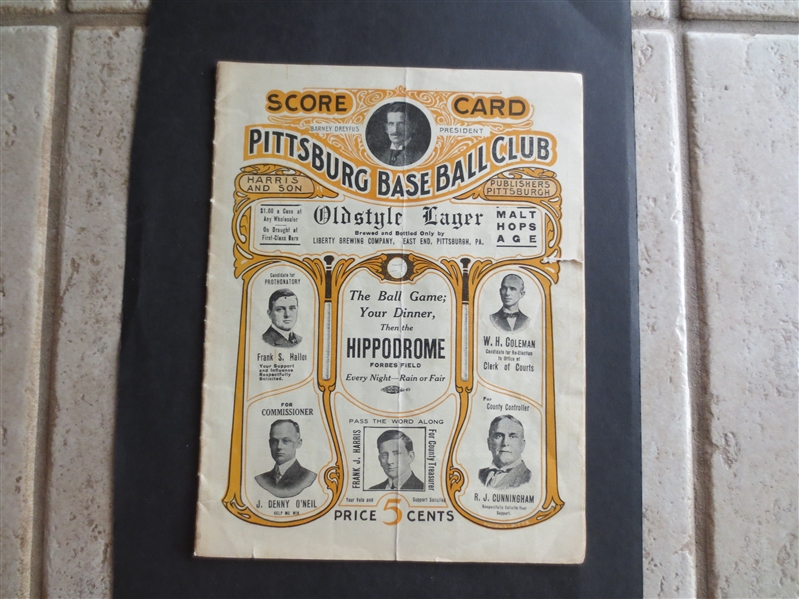 SCORE CARD
BARNEY DREYFUS PRESIDENT
PITTSBURG BASE BALL CLUB
HARRIS AND SON
PUBLISHERS PITTSBURGH
$1.00 a Case at
Any Wholesaler
On Draught at
First-Class Bars
Oldstyle Lager
Brewed and Bottled Only by
LIBERTY BREWING COMPANY, EAST END, PITTSBURGH, PA.
MALT
HOPS
AGE
Candidate for
PROTHONOTARY
Frank S.
Your Support
and Influence
Respectfully
Solicited.
The Ball Game;
Your Dinner,
Then the
HIPPODROME
FORBES FIELD
Every Night—Rain or Fair
W. H. COLEMAN
Candidate for Re-Election
to Office of
Clerk of Courts
FOR
COMMISSIONER
J. DENNY O'NEIL
HELP ME WIN
PASS THE WORD ALONG
FRANK J. HARRIS
For County Treasurer
Your Vote and Support Solicited
For
County Controller
R. J. CUNNINGHAM
Respectfully Solicits Your
Support.
PRICE 5 CENTS